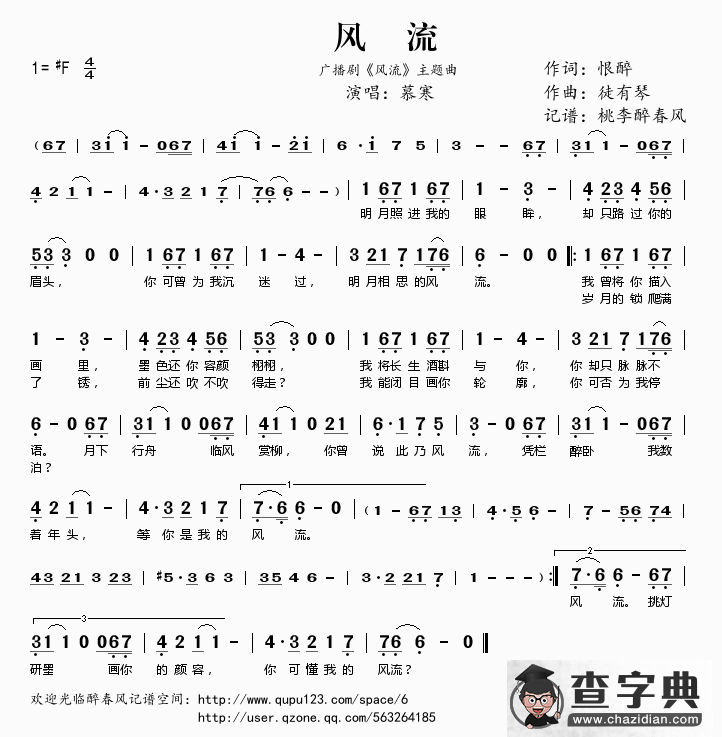 风 流
1=♯F 4/4
广播剧《风流》主题曲
演唱：慕寒
作词：恨醉
作曲：徒有琴
记谱：桃李醉春风
（67 | 31 1 - 067 | 41 1 - 21 | 6·1 7 5 | 3 - - 67 | 31 1 - 067 |
4 2 1 1 - | 4·3 2 1 7 | 76 6 - - ） | 1 67 1 67 | 1 - 3 - | 4 23 4 56 |
明月照进我的 眼 眸， 却只路过你的
53 3 0 0 | 1 67 1 67 | 1 - 4 - | 3 21 7 176 | 6 - 0 0 ‖: 1 67 1 67 |
眉头， 你可曾为我沉 迷 过， 明月相思的风 流。 我曾将你描入
岁月的锁爬满
1 - 3 - | 4 23 4 56 | 53 3 0 0 | 1 67 1 67 | 1 - 4 - | 3 21 7 176 |
画 里， 墨色还你容颜 栩栩， 我将长生酒斟 与 你， 你却只脉脉不
了 锈， 前尘还吹不吹 得走？ 我能闭目画你 轮 廓， 你可否为我停
6 - 0 67 | 31 1 0 067 | 41 1 0 21 | 6·1 7 5 | 3 - 0 67 | 31 1 - 067 |
语。 月下 行舟 临风 赏柳， 你曾 说此乃风 流， 凭栏 醉卧 我数
泊？
4 2 1 1 - | 4·3 2 1 7 | 7·6 6 - 0 | （1 - 67 13 | 4·5 6 - | 7 - 56 74 |
1
着年头， 等你是我的 风 流。
43 21 3 23 | ♯5·3 6 3 | 35 4 6 - | 3·2 21 7 | 1 - - - ） :‖ 7·6 6 - 67 |
2
风 流。 挑灯
3
31 1 0 067 | 4 2 1 1 - | 4·3 2 1 7 | 76 6 - 0 ‖
研墨 画你 的颜容， 你可懂我的 风流？
欢迎光临醉春风记谱空间：http://www.qupu123.com/space/6
http://user.qzone.qq.com/563264185
查字典
www.chazidian.com